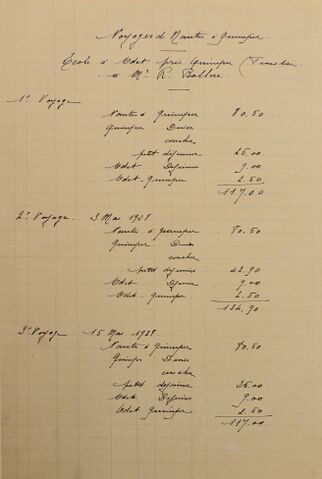 Voyages de Nantes à Quimper.
Ecole à Odet près Quimper (Finistère
à Mr R. Bolloré
1er Voyage
Nantes à Quimper 80.50
Quimper Diner
coucher
petit déjeuner 25,00
Odet Déjeuner 9.00
Odet-Quimper 2.50
117.00
2e Voyage. 3 Mai 1928
Nantes à Quimper 80.50
Quimper Diner
coucher
petit déjeuner 42,90
Odet Déjeuner 9.00
Odet-Quimper 2.50
134,90
3e Voyage 15 Mai 1928.
Nantes à Quimper 80.50
Quimper Diner
coucher
petit déjeuner 25.00
Odet Déjeuner 9.00
Odet Quimper 2.50
117.00.